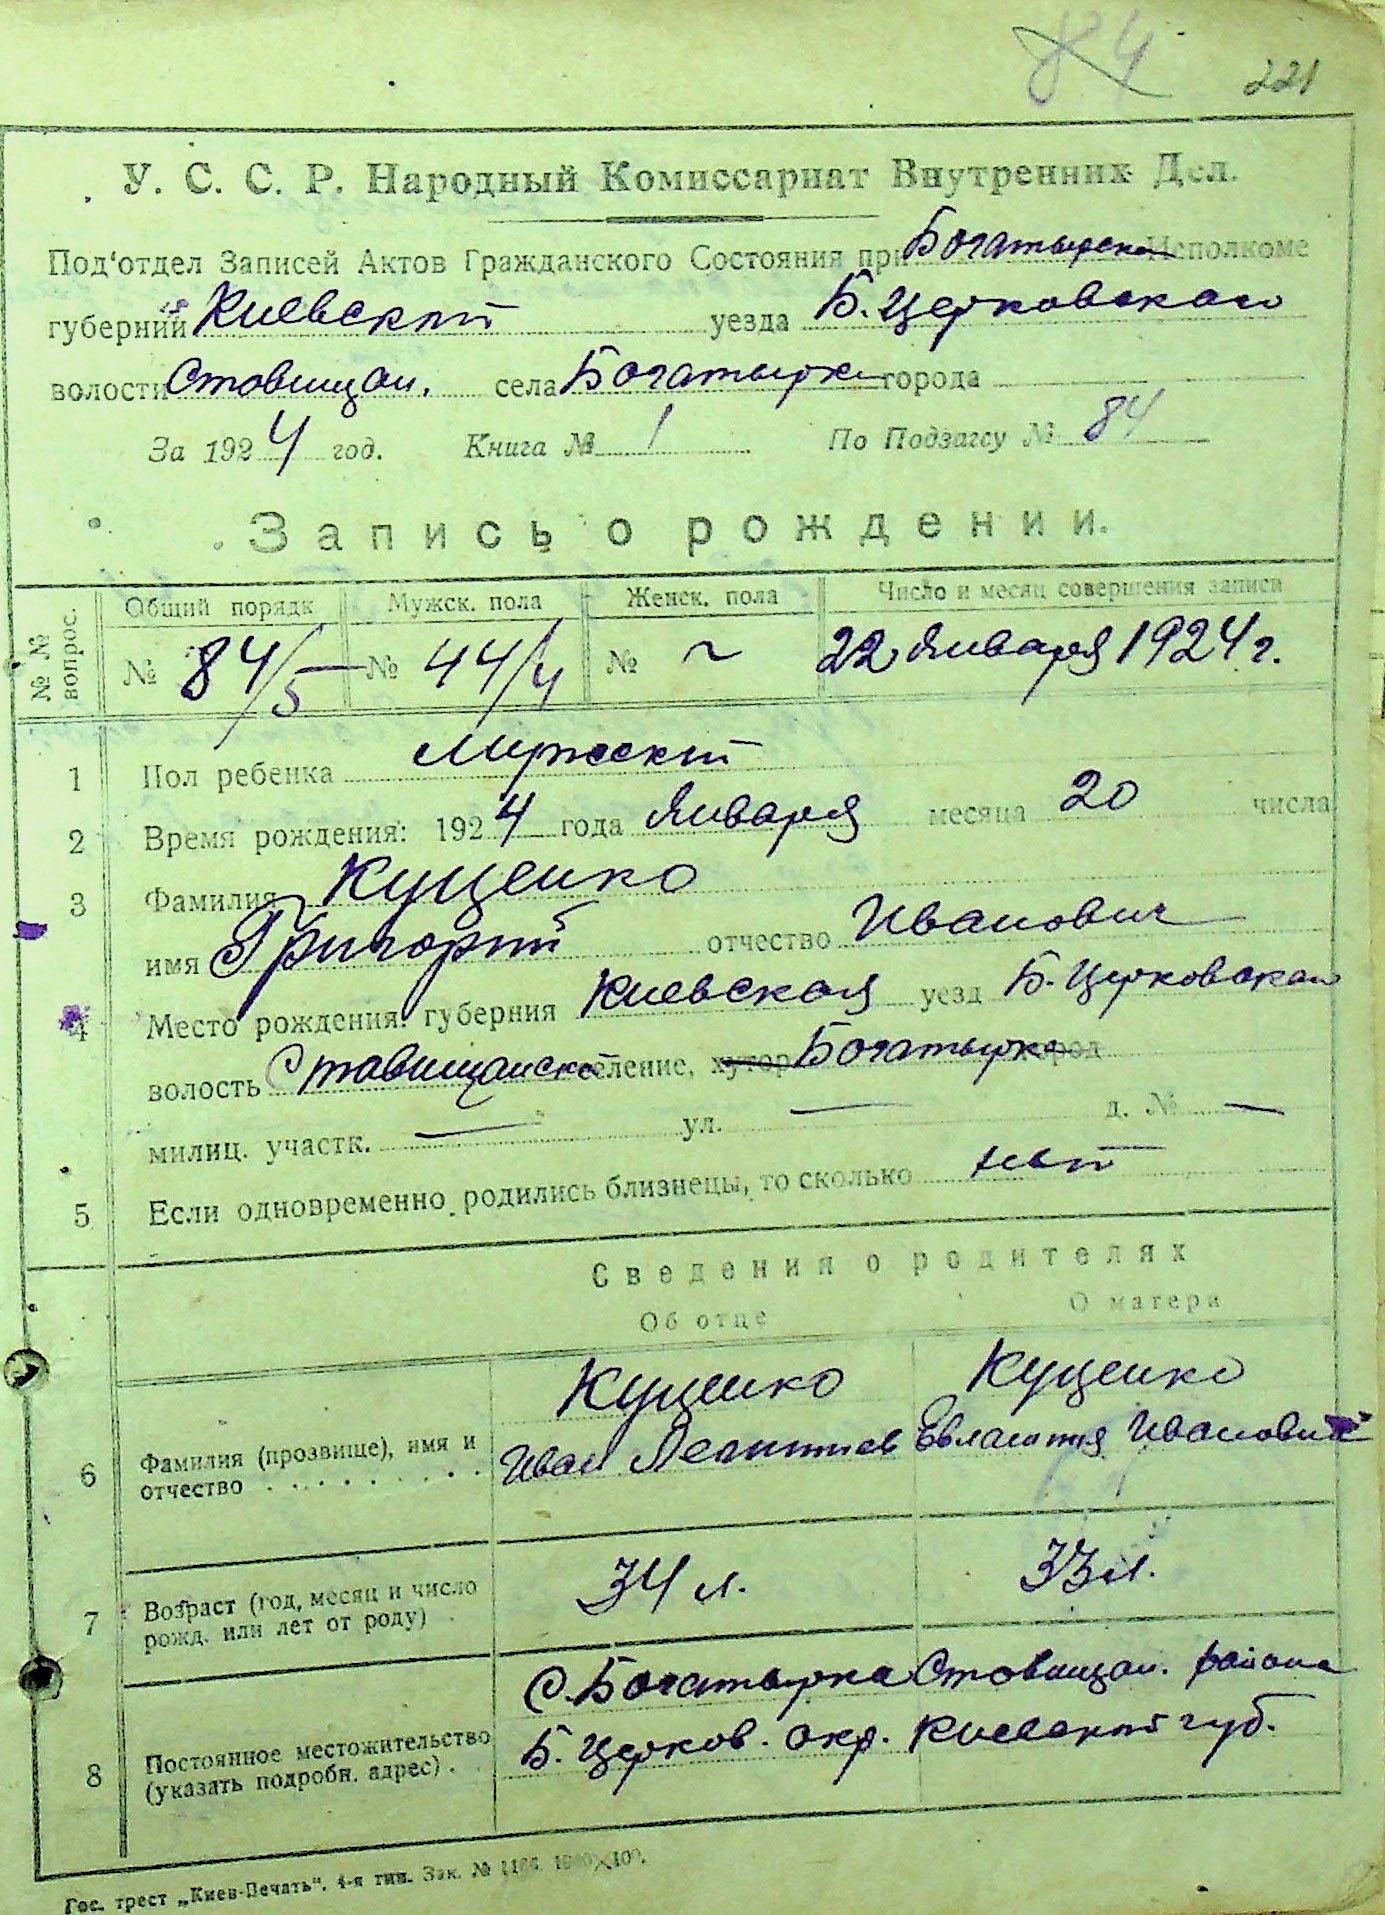 84 221
У. С. С. Р. Народный Комиссариат Внутренних Дел.
Под'отдел Записей Актов Гражданского Состояния при Богатырском Исполкоме
губернии Киевской уезда Б. Церковского
волости Ставищан. села Богатырка города
За 1924 год. Книга № 1 По Подзагсу № 84
Запись о рождении.
№№ вопрос. Общий порядк Мужск. пола Женск. пола Число и месяц совершения записи
№ 84/5 № 44/4 № ~ 22 Января 1924 г.
1 Пол ребенка Мужской
2 Время рождения: 1924 года Января месяца 20 числа
3 Фамилия Куценко
имя Григорий отчество Иванович
4 Место рождения: губерния Киевская уезд Б. Церковской
волость Ставищанск селение, хутор Богатырка город
милиц. участк. — ул. — д. № —
5 Если одновременно родились близнецы, то сколько нет
Сведения о родителях
Об отце О матери
Куценко Куценко
6 Фамилия (прозвище), имя и отчество Иван Леонтиев Евлампия Иванович
7 Возраст (год, месяц и число рожд. или лет от роду) 34 л. 33 л.
С. Богатырка Ставищан. района
8 Постоянное местожительство (указать подробн. адрес). Б. Церков. окр. Киевской губ.
Гос. трест „Киев-Печать". 4-я тип. Зак. №